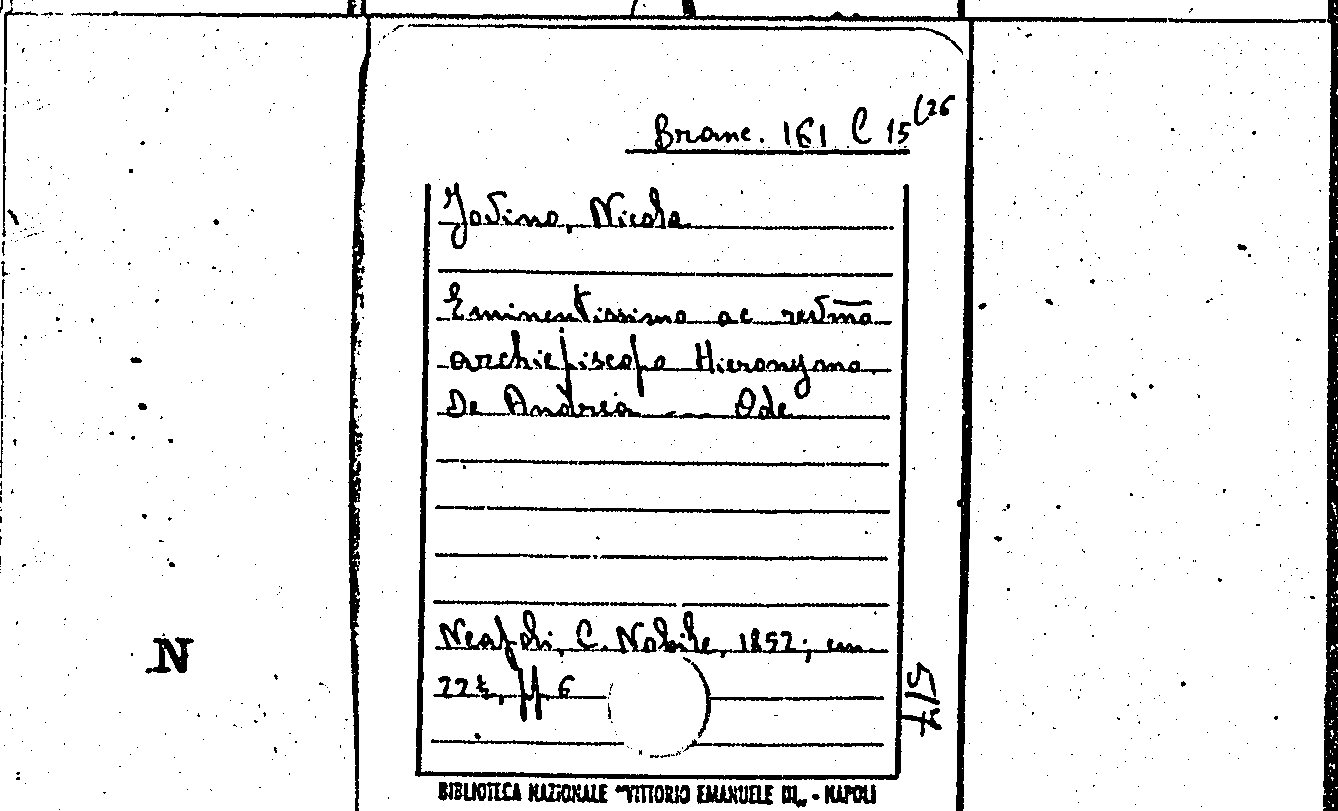 Branc. 161 C 15 (26
Jovino, Nicola
Eminentissimo ac revd̄mo
archiepiscopo Hieronymo
De Andrea ... Ode
Neapoli, C. Nobile, 1852; cm
22½, pp. 6
N
BIBLIOTECA NAZIONALE "VITTORIO EMANUELE III„ - NAPOLI